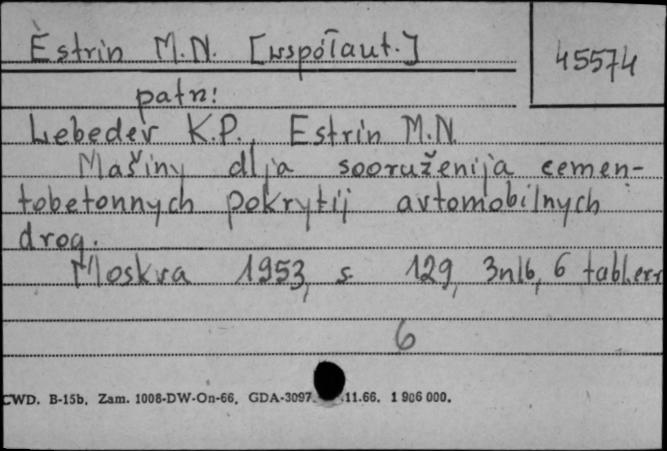 Èstrin M.N. [współaut.]
45574
patrz:
Lebedev K.P., Estrin M.N.
Mašiny dlja sooruženija cemen-
tobetonnych pokrytij avtomobilnych
drog.
Moskva 1953, s 129, 3nlb, 6 tabl.err
6
CWD. B-15b. Zam. 1008-DW-On-66. GDA-3097 .11.66. 1 906 000.